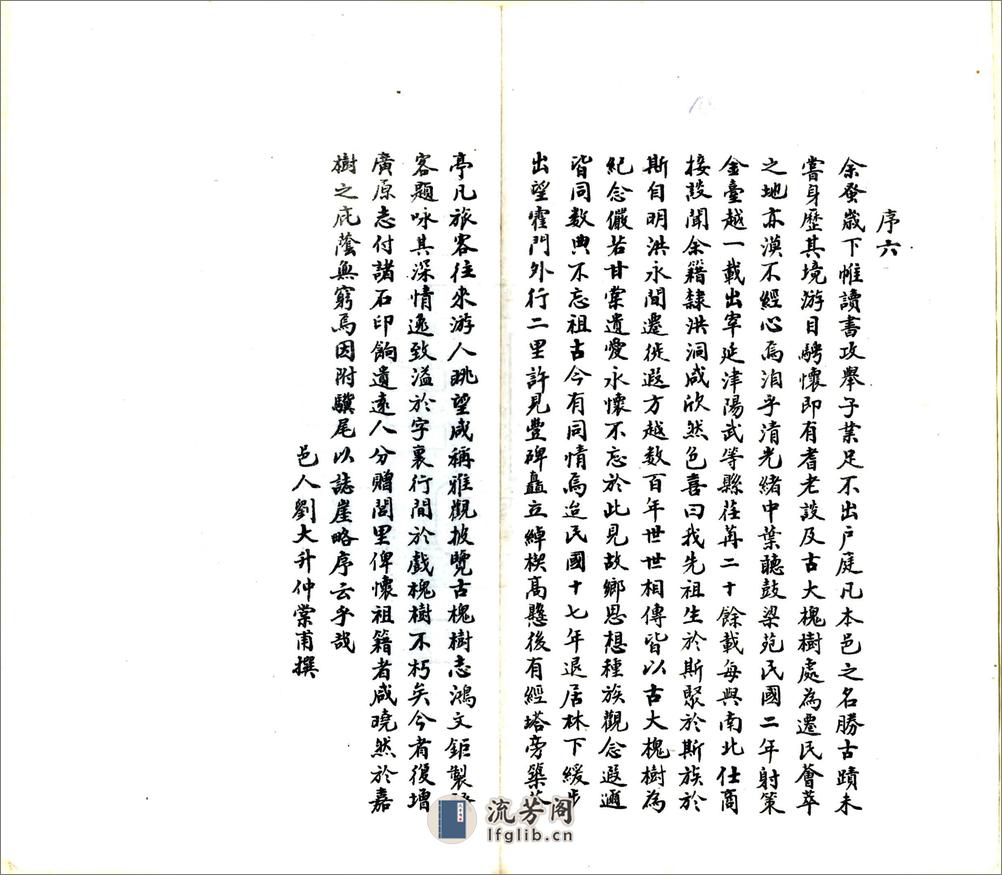 序六
余蚤歲下帷讀書攻舉子業足不出戶庭凡本邑之名勝古蹟未
嘗身歷其境游目騁懷即有耆老談及古大槐樹處為遷民薈萃
之地亦漠不經心焉洎乎清光緒中葉聽鼓梁苑民國二年射策
金臺越一載出宰延津陽武等縣荏苒二十餘載每與南北仕商
接談聞余籍隸洪洞咸欣然色喜曰我先祖生於斯聚於斯族於
斯自明洪永間遷徙遐方越數百年世世相傳皆以古大槐樹為
紀念儼若甘棠遺愛永懷不忘於此見故鄉思想種族觀念遐邇
皆同數典不忘祖古今有同情焉迨民國十七年退居林下緩步
出望霍門外行二里許見豐碑矗立綽楔高懸後有經塔旁築茶
亭凡旅客往來游人眺望咸稱雅觀披覽古槐樹志鴻文鉅製
客題咏其深情逸致溢於字裏行間於戲槐樹不朽矣今者復增
廣原志付諸石印餉遺遠人分贈閭里俾懷祖籍者咸曉然於嘉
樹之庇蔭無窮焉因附驥尾以誌崖略序云乎哉
邑人劉大升仲棠甫撰
流芳阁
lfglib.cn